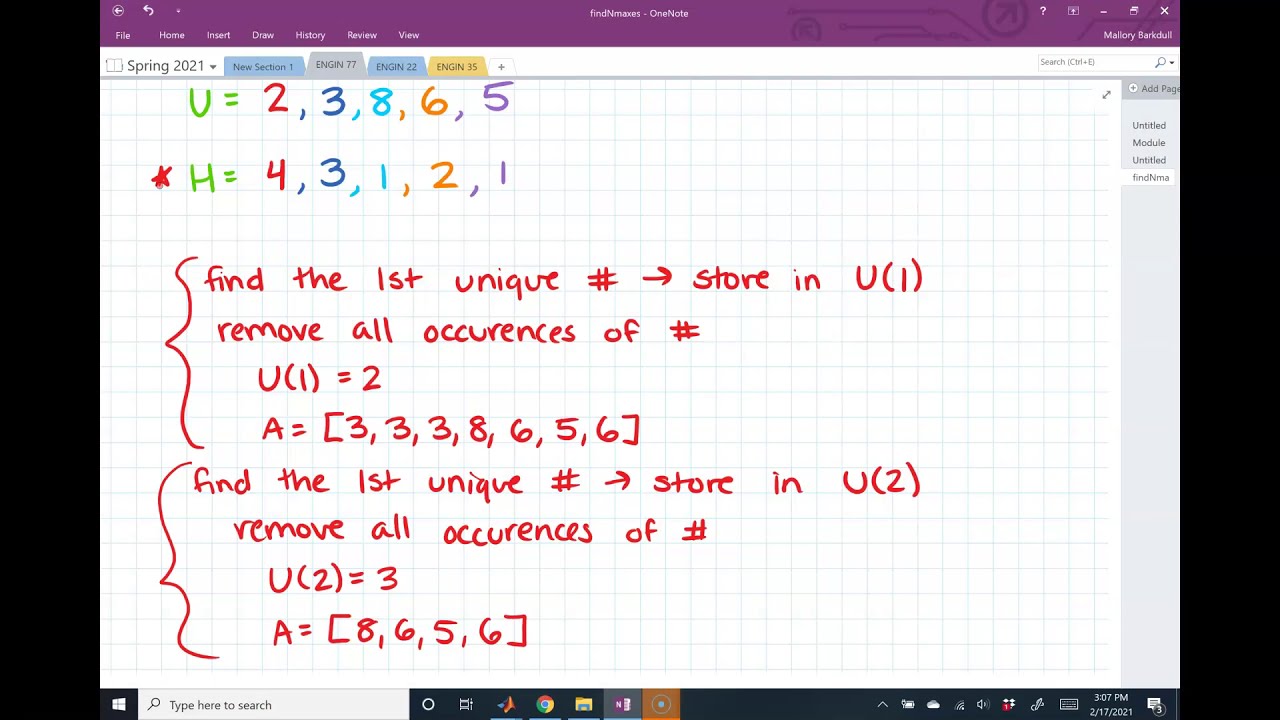 findNmaxes - OneNote
?
Mallory Barkdull
File Home Insert Draw History Review View
Spring 2021
New Section 1
ENGIN 77
ENGIN 22
ENGIN 35
+
Search (Ctrl+E)
Add Page
Untitled
Module
Untitled
findNma
U = 2, 3, 8, 6, 5
* H = 4, 3, 1, 2, 1
find the 1st unique # → store in U(1)
remove all occurences of #
U(1) = 2
A = [3, 3, 3, 8, 6, 5, 6]
find the 1st unique # → store in U(2)
remove all occurences of #
U(2) = 3
A = [8, 6, 5, 6]
Type here to search
3:07 PM
2/17/2021
3